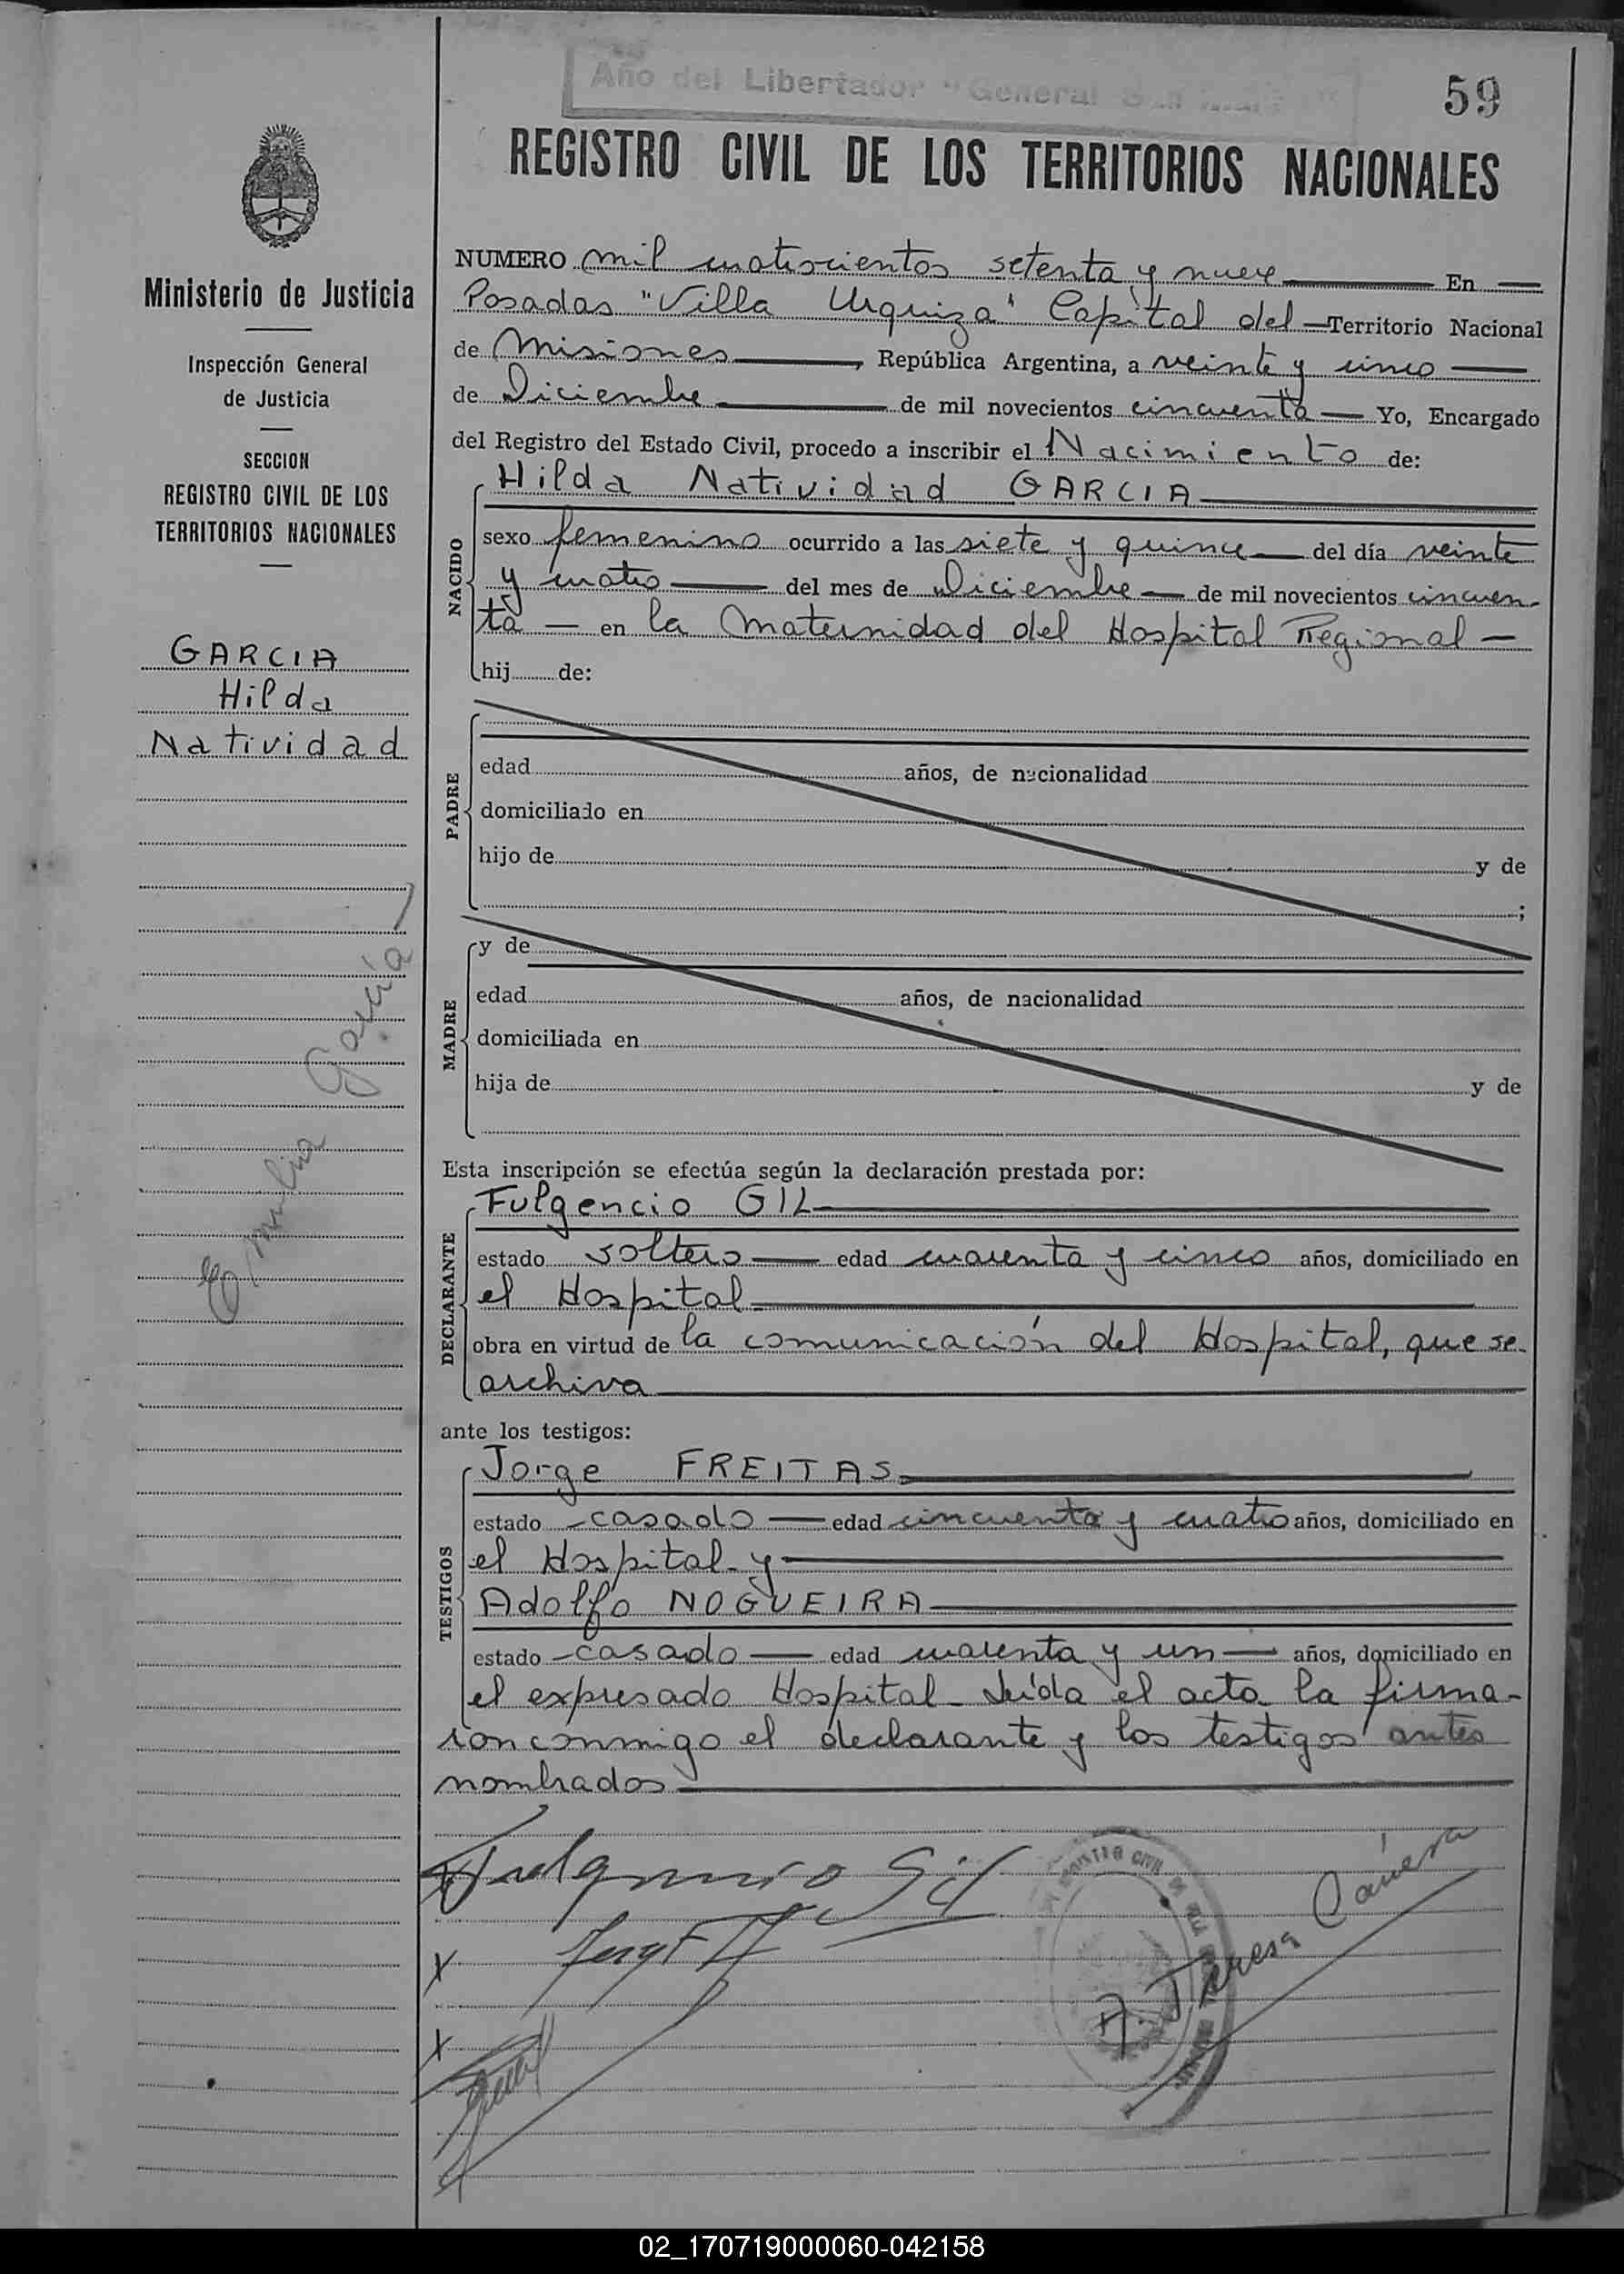 Año del Libertador "General San Martín"
59
REGISTRO CIVIL DE LOS TERRITORIOS NACIONALES
Ministerio de Justicia
Inspección General
de Justicia
SECCION
REGISTRO CIVIL DE LOS
TERRITORIOS NACIONALES
GARCIA
Hilda
Natividad
Emilia García
NUMERO mil cuatrocientos setenta y nueve En
Posadas "Villa Urquiza" Capital del Territorio Nacional
de Misiones, República Argentina, a veinte y cinco
de Diciembre de mil novecientos cincuenta Yo, Encargado
del Registro del Estado Civil, procedo a inscribir el Nacimiento de:
NACIDO
Hilda Natividad GARCIA
sexo femenino ocurrido a las siete y quince del día veinte
y cuatro del mes de Diciembre de mil novecientos cincuen-
ta — en la Maternidad del Hospital Regional —
hij de:
PADRE
edad años, de nacionalidad
domiciliado en
hijo de y de
;
MADRE
y de
edad años, de nacionalidad
domiciliada en
hija de y de
Esta inscripción se efectúa según la declaración prestada por:
DECLARANTE
Fulgencio GIL
estado soltero edad cuarenta y cinco años, domiciliado en
el Hospital
obra en virtud de la comunicación del Hospital, que se
archiva
ante los testigos:
TESTIGOS
Jorge FREITAS
estado casado edad cincuenta y cuatro años, domiciliado en
el Hospital y
Adolfo NOGUEIRA
estado casado edad cuarenta y un años, domiciliado en
el expresado Hospital - Leída el acta la firma-
ron conmigo el declarante y los testigos antes
nombrados
Fulgencio Gil
A. Teresa
02_170719000060-042158